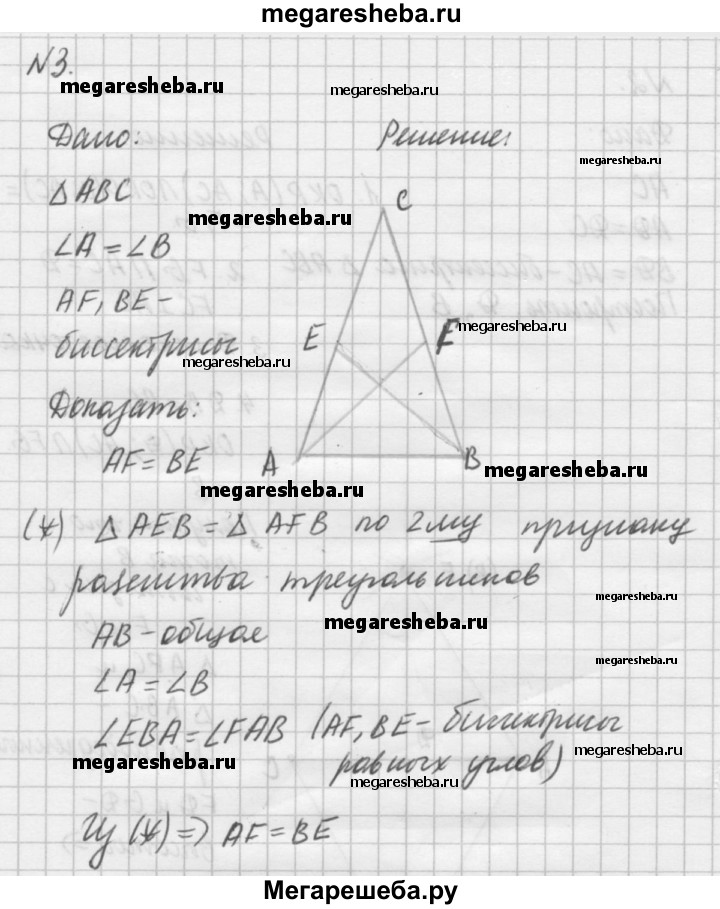 megaresheba.ru
N3.
megaresheba.ru
megaresheba.ru
Дано:
Решение:
megaresheba.ru
Δ ABC
megaresheba.ru
C
∠A = ∠B
AF, BE -
биссектрисы
megaresheba.ru
megaresheba.ru
E
F
Доказать:
AF = BE
A
B
megaresheba.ru
megaresheba.ru
(*) Δ AEB = Δ AFB по 2му признаку
равенства треугольников
megaresheba.ru
AB - общая
megaresheba.ru
∠A = ∠B
megaresheba.ru
∠EBA = ∠FAB (AF, BE - биссектрисы
равных углов)
megaresheba.ru
megaresheba.ru
megaresheba.ru
Из (*) => AF = BE
Мегарешеба.ру